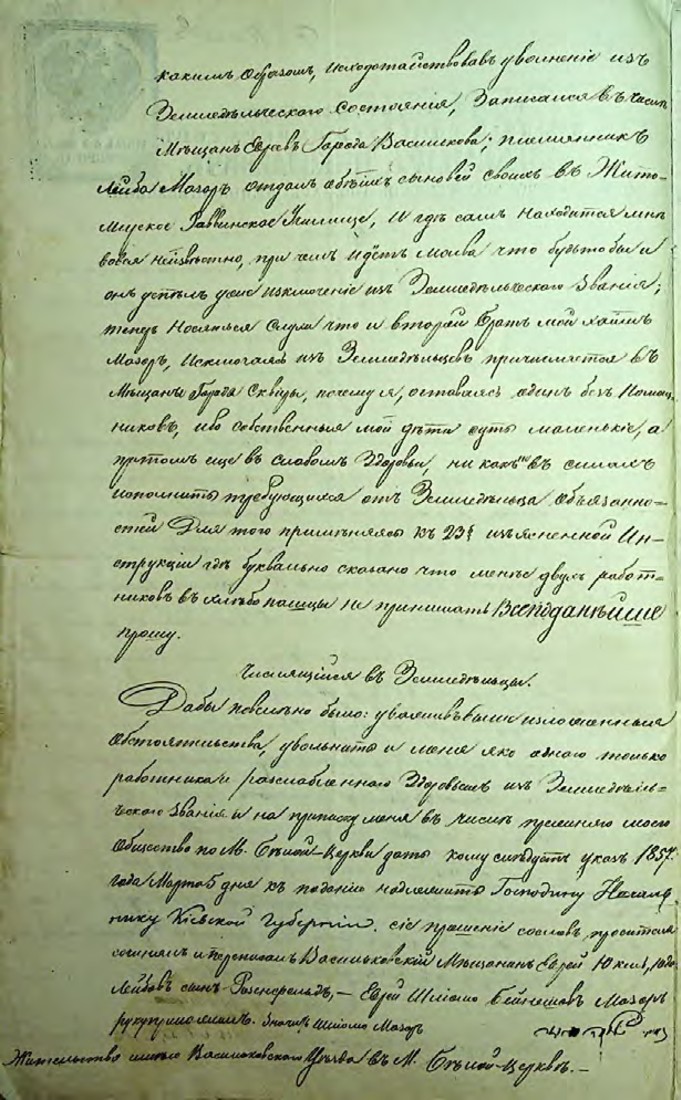 какимъ образомъ, исходотайствовавъ уволненіе изъ
Земледѣльческаго Состоянія, Записался въ число
Мѣщанъ Евреевъ Города Василькова; племянникъ
Лейба Мазоръ отдалъ обѣихъ сыновей своихъ въ Жито-
мирское Раввинское Училище, и гдѣ самъ находится мнѣ
вовся неизвѣстно, при чемъ идетъ молва что будьто бы и
онъ успѣлъ уже изключеніе изъ Земледѣльческаго Званія;
теперь носяться слухи что и второй Братъ мой Хаимъ
Мазоръ, исключаясь изъ Земледѣльцевъ причисляется въ
Мѣщане Города Сквиры, почему я, оставаясь одинъ безъ Помощ-
никовъ, ибо собственныя мои дѣти суть маленькіе, а
притомъ еще въ слабомъ Здоровьи, ни какъ въ силахъ
исполнить требующихся отъ Земледѣльца Обязанно-
стей Для того примѣняясь къ 23§ изъясненной Ин-
струкціи гдѣ буквально сказано что менѣе двухъ работ-
никовъ въ хлѣбопашцы не принимать Всеподаннѣйше
прошу.
Числящійся въ Земледѣльцы.
Дабы повелѣно было: уваживъ выше изложенныя
Обстоятельства, уволнить и меня яко одного только
работника и разслабленнаго Здоровьемъ изъ Земледѣль-
ческаго Званія и на приписку меня въ число прежняго моего
Общества по М. Бѣлой-Церкви дать кому слѣдуетъ указъ 1857.
года Марта 5 дня къ поданію надлежитъ Господину Началь-
нику Кіевской Губерніи. сіе прошеніе со словъ просителя
сочинялъ и переписалъ Васильковскій Мѣщанинъ Еврей Юкель,
Лейбовъ сынъ Розенфельдъ, — Еврей Шлиомо Бейнешовъ Мазоръ
руку приложилъ. Шлиомо Мазоръ
Жительство имѣю Васильковскаго Уѣзда въ М. Бѣлой-Церквѣ. —